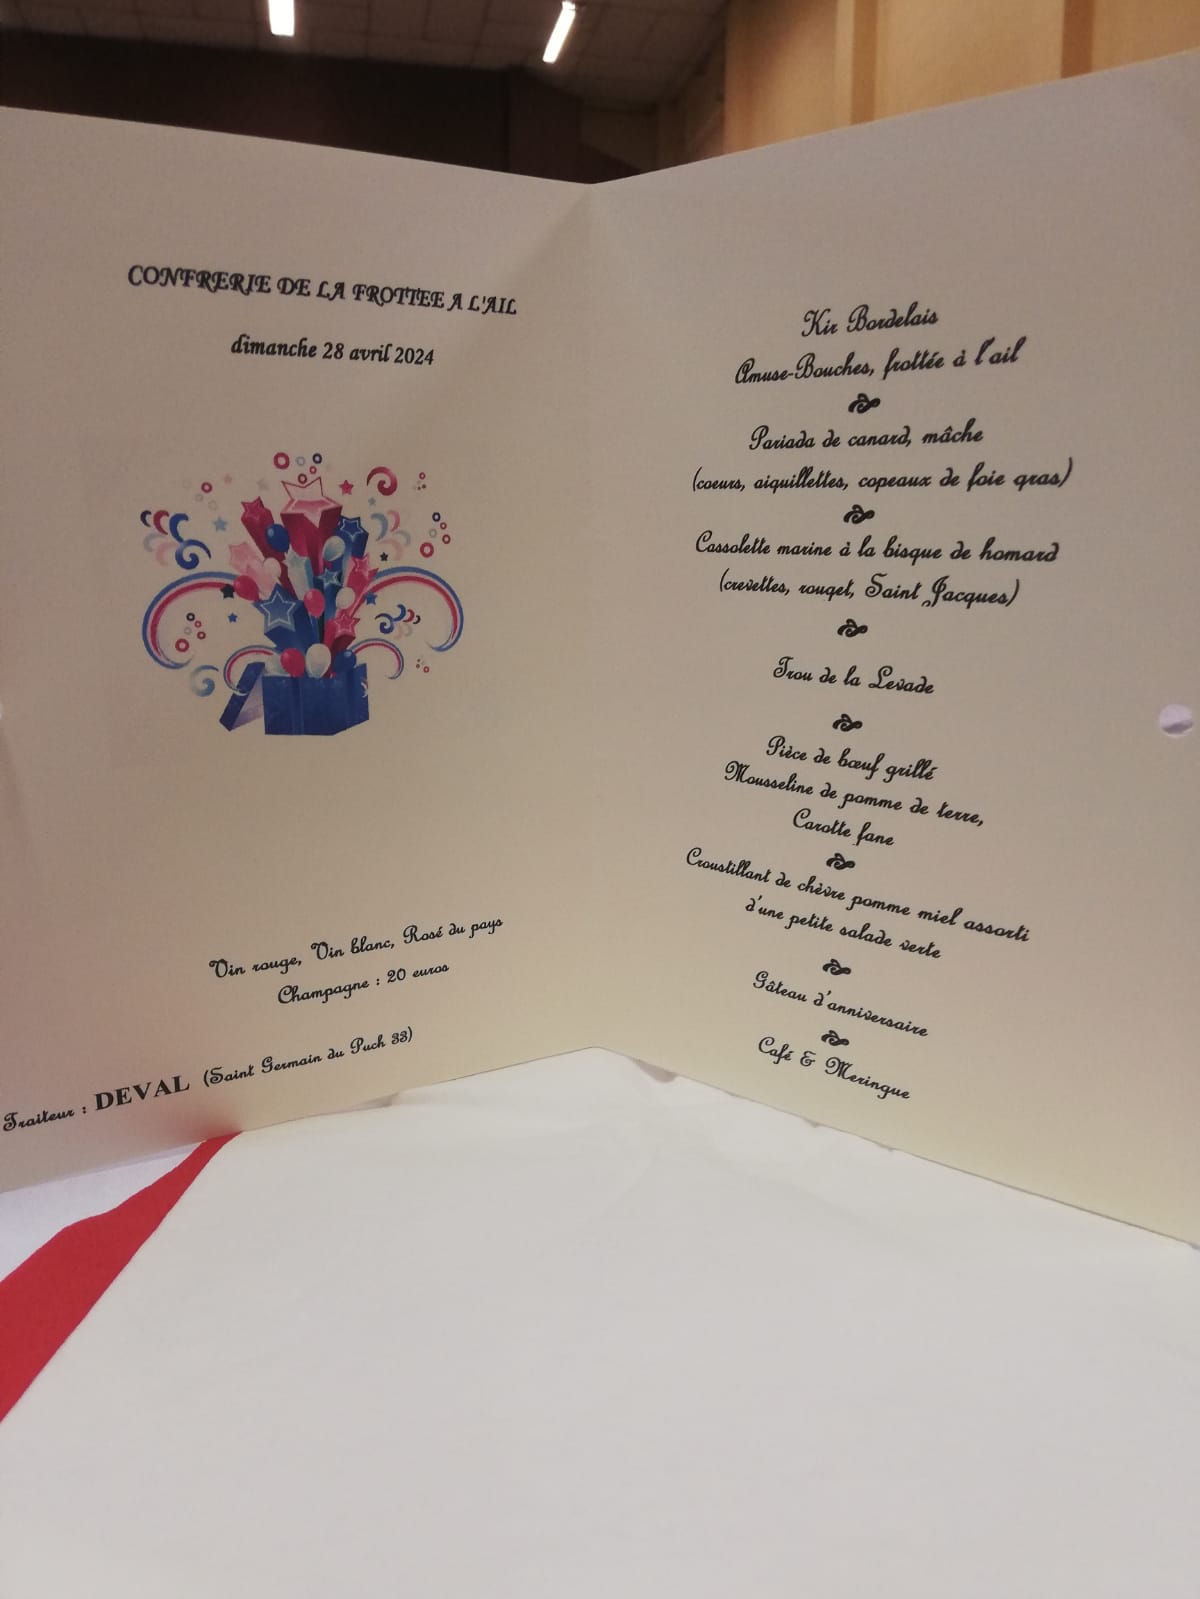 CONFRERIE DE LA FROTTEE A L'AIL
dimanche 28 avril 2024
Vin rouge, Vin blanc, Rosé du pays
Champagne : 20 euros
Traiteur : DEVAL (Saint Germain du Puch 33)
Kir Bordelais
Amuse-Bouches, frottée à l'ail
Pariada de canard, mâche
(coeurs, aiguillettes, copeaux de foie gras)
Cassolette marine à la bisque de homard
(crevettes, rouget, Saint Jacques)
Trou de la Levade
Pièce de bœuf grillé
Mousseline de pomme de terre,
Carotte fane
Croustillant de chèvre pomme miel assorti
d'une petite salade verte
Gâteau d'anniversaire
Café & Meringue